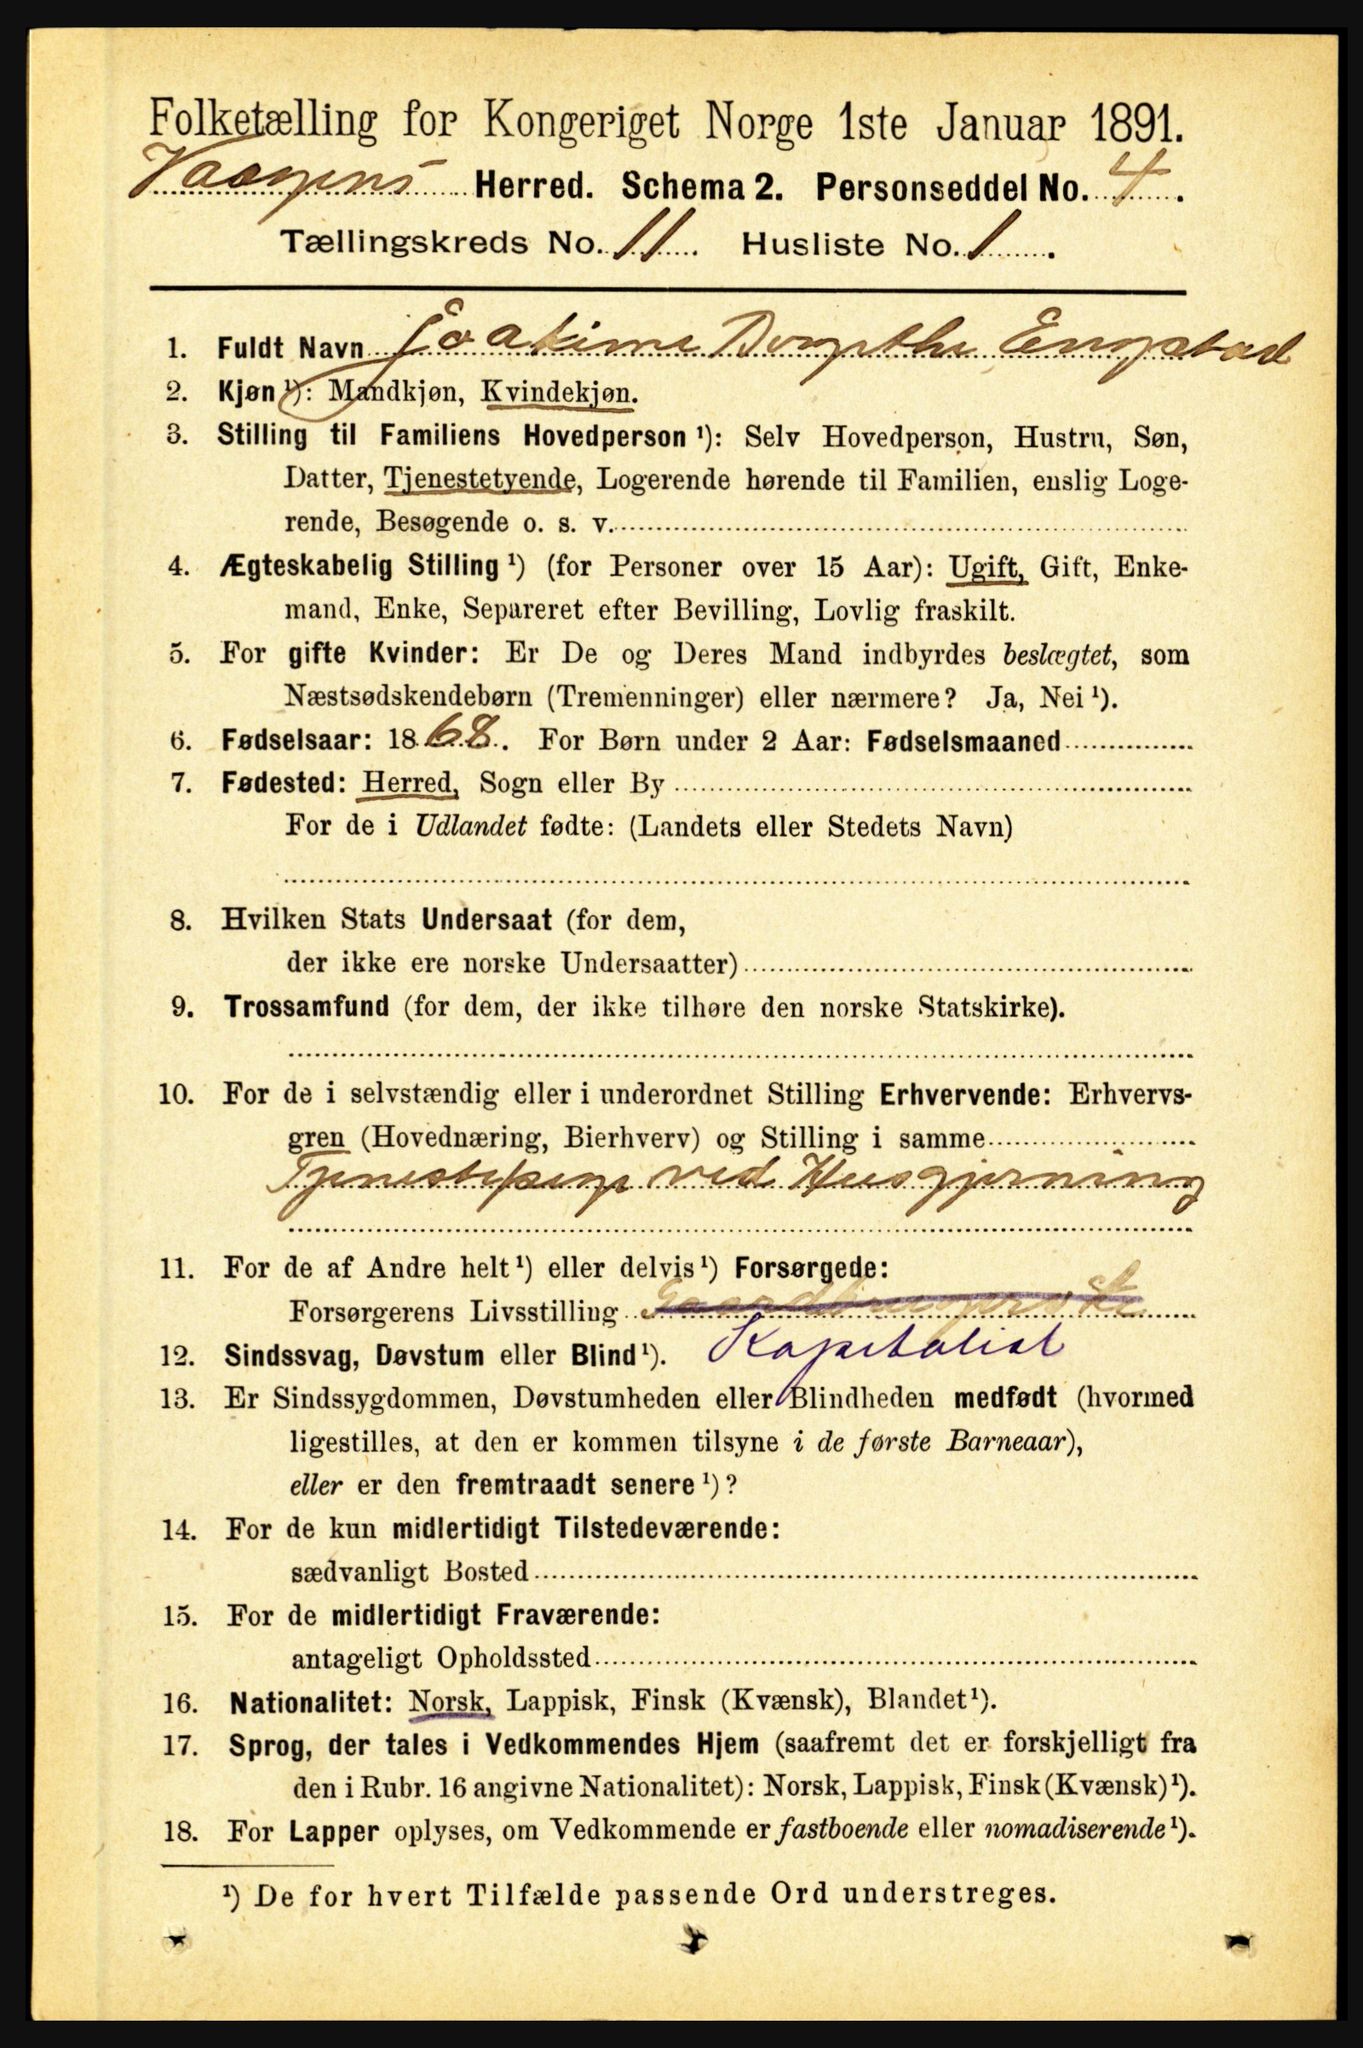 Folketælling for Kongeriget Norge 1ste Januar 1891.
Vaagens Herred. Schema 2. Personseddel No. 4.
Tællingskreds No. 11. Husliste No. 1.
1. Fuldt Navn Joakime Engstad
2. Kjøn ¹): Mandkjøn, Kvindekjøn.
3. Stilling til Familiens Hovedperson ¹): Selv Hovedperson, Hustru, Søn,
Datter, Tjenestetyende, Logerende hørende til Familien, enslig Loge-
rende, Besøgende o. s. v.
4. Ægteskabelig Stilling ¹) (for Personer over 15 Aar): Ugift, Gift, Enke-
mand, Enke, Separeret efter Bevilling, Lovlig fraskilt.
5. For gifte Kvinder: Er De og Deres Mand indbyrdes beslægtet, som
Næstsødskendebørn (Tremenninger) eller nærmere? Ja, Nei ¹).
6. Fødselsaar: 1868. For Børn under 2 Aar: Fødselsmaaned
7. Fødested: Herred, Sogn eller By
For de i Udlandet fødte: (Landets eller Stedets Navn)
8. Hvilken Stats Undersaat (for dem,
der ikke ere norske Undersaatter)
9. Trossamfund (for dem, der ikke tilhøre den norske Statskirke).
10. For de i selvstændig eller i underordnet Stilling Erhvervende: Erhvervs-
gren (Hovednæring, Bierhverv) og Stilling i samme
Tjenestepige ved Husgjerning
11. For de af Andre helt ¹) eller delvis ¹) Forsørgede:
Forsørgerens Livsstilling
12. Sindssvag, Døvstum eller Blind ¹). Kapitalist
13. Er Sindssygdommen, Døvstumheden eller Blindheden medfødt (hvormed
ligestilles, at den er kommen tilsyne i de første Barneaar),
eller er den fremtraadt senere ¹)?
14. For de kun midlertidigt Tilstedeværende:
sædvanligt Bosted
15. For de midlertidigt Fraværende:
antageligt Opholdssted
16. Nationalitet: Norsk, Lappisk, Finsk (Kvænsk), Blandet ¹).
17. Sprog, der tales i Vedkommendes Hjem (saafremt det er forskjelligt fra
den i Rubr. 16 angivne Nationalitet): Norsk, Lappisk, Finsk (Kvænsk) ¹).
18. For Lapper oplyses, om Vedkommende er fastboende eller nomadiserende ¹).
¹) De for hvert Tilfælde passende Ord understreges.